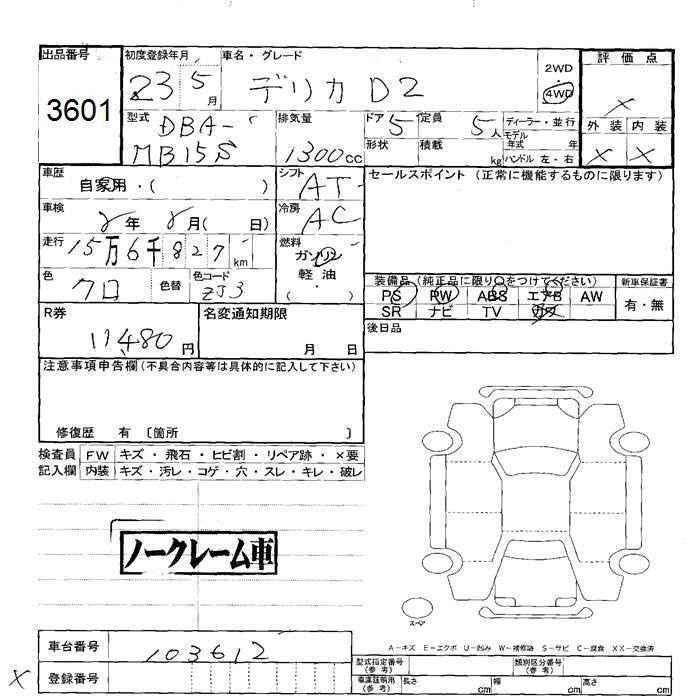 出品番号 初度登録年月 車名・グレード 2WD 評価点
3601 23 5月 デリカ D2 4WD X
型式 DBA- 排気量 ドア 5 定員 5人 ディーラー・並行 外装 内装
MB15S 1300cc 形状 積載 kg モデル年式 年 ハンドル 左・右 X X
車歴 自家用・( ) シフト AT セールスポイント (正常に機能するものに限ります)
車検 年 月( 日) 冷房 AC
走行 15万6千827km 燃料 ガソリン
色 クロ 色替 色コード ZJ3 軽油 ( ・ )
装備品(純正品に限り○をつけてください) 新車保証書
PS PW ABS エアB AW 有・無
SR ナビ TV
R券 11,480円 名変通知期限 月 日 後日品
注意事項申告欄(不具合内容等は具体的に記入して下さい)
修復歴 有 〔箇所 〕
検査員 FW キズ・飛石・ヒビ割・リペア跡・×要
記入欄 内装 キズ・汚レ・コゲ・穴・スレ・キレ・破レ
ノークレーム車
スペア
A-キズ E-エクボ U-凹み W-補修跡 S-サビ C-腐食 XX-交換済
車台番号 103612 型式指定番号(参考) 類別区分番号(参考)
X 登録番号 車庫証明用(参考) 長さ cm 幅 cm 高さ cm